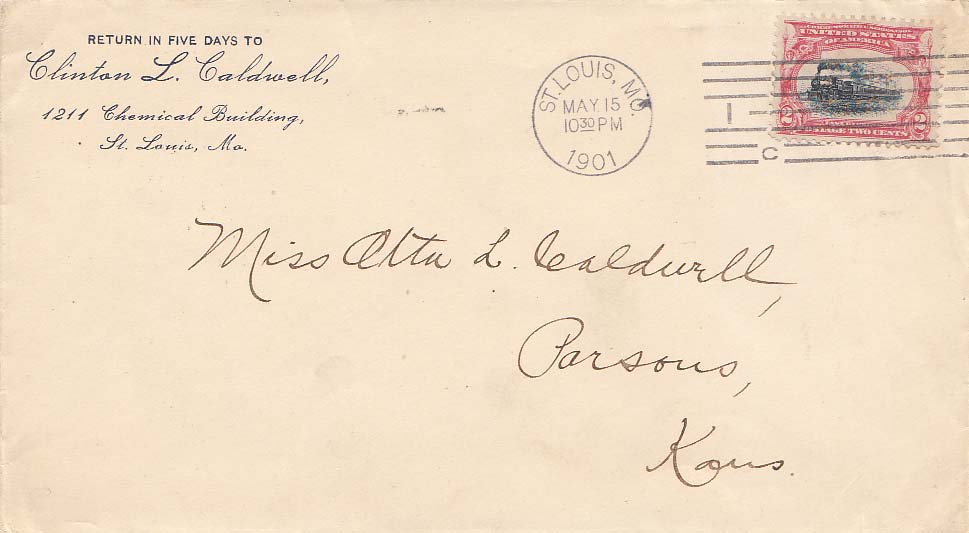 RETURN IN FIVE DAYS TO
Clinton L. Caldwell,
1211 Chemical Building,
St. Louis, Mo.
ST. LOUIS, MO.
MAY 15
10 30 PM
1901
1
C
UNITED STATES
OF AMERICA
2 2
POSTAGE TWO CENTS
Miss Otta L. Caldwell,
Parsons,
Kans.